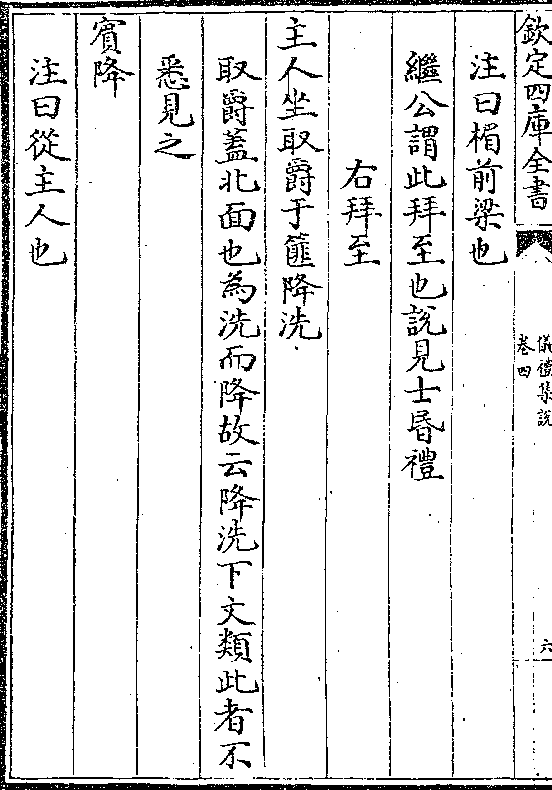 欽定四庫全書
儀禮集説
卷四
六
注曰楣前梁也
繼公謂此拜至也說見士昏禮
右拜至
主人坐取爵于篚降洗
取爵蓋北面也為洗而降故云降洗下文類此者不
悉見之
賓降
注曰從主人也